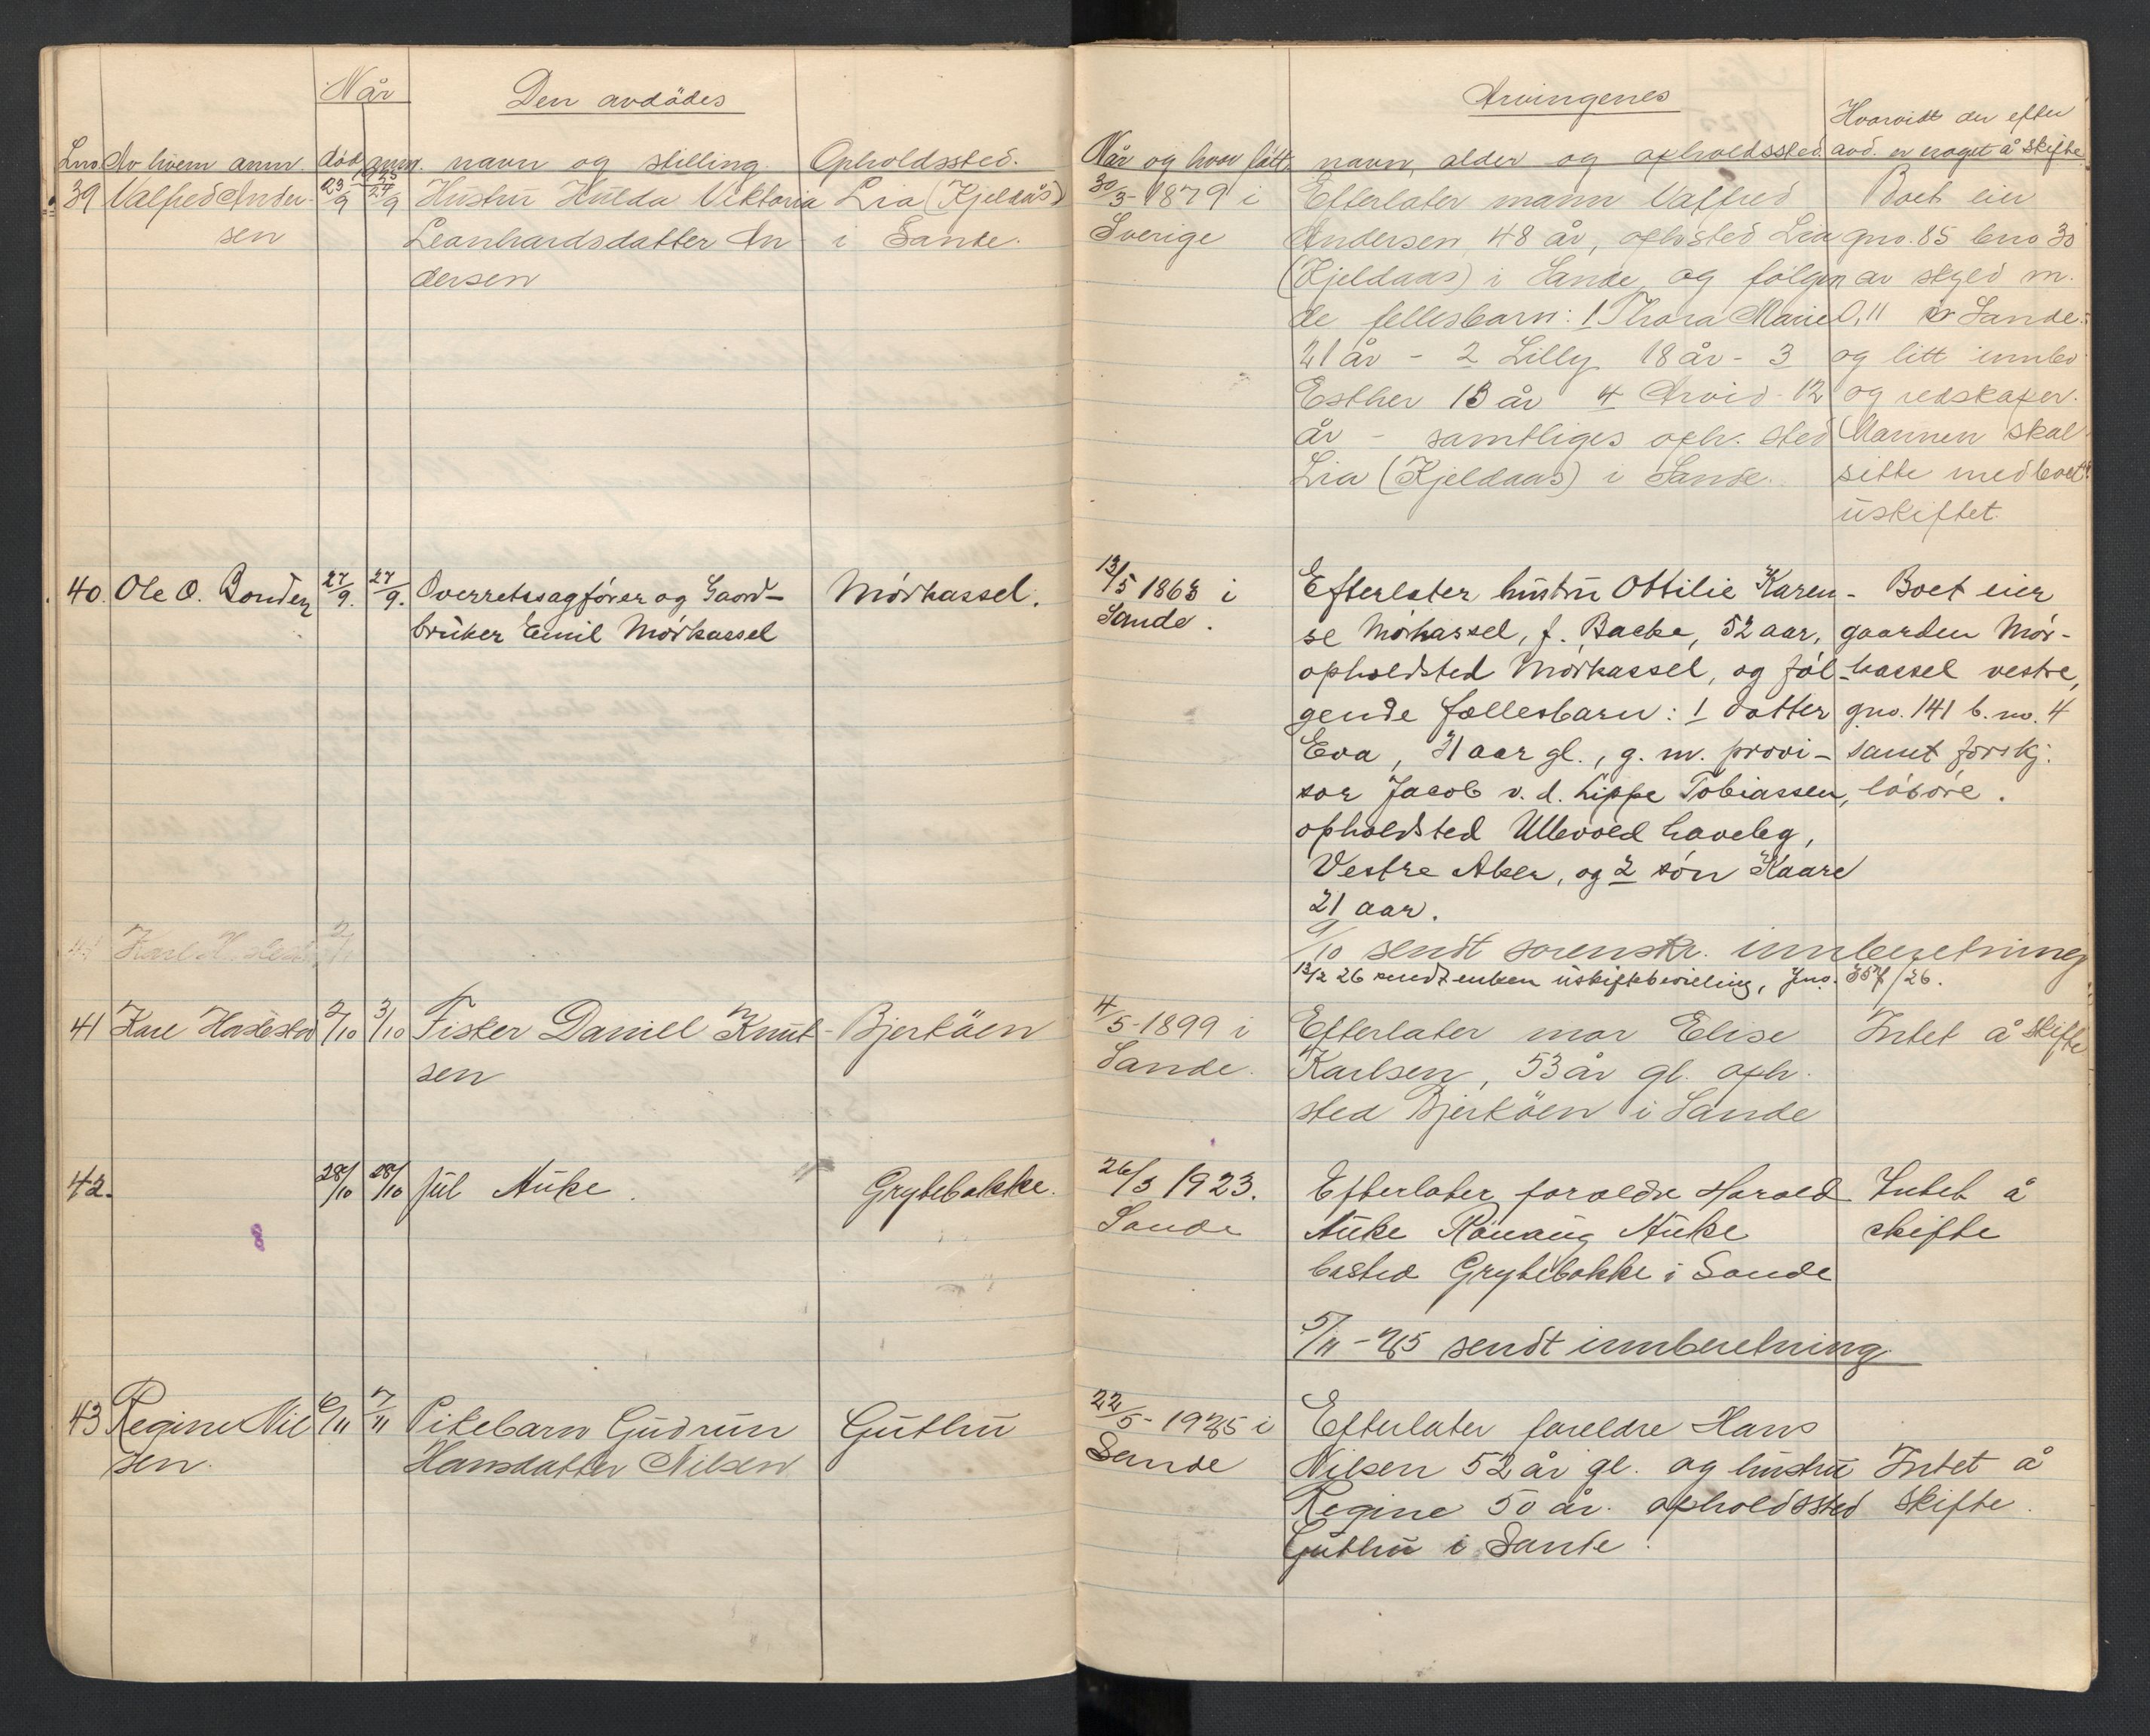 Når
Den avdödes
Arvingenes
Hvorvidt der efter
Lno Av hvem anm. död anm. navn og stilling. Opholdssted. Når og hvor fött navn, alder og opholdssted. avd. er noget å skifte
1925
39 Valfred Ander- 23/9 24/9 Hustru Hulda Viktoria Lia (Kjeldås) 30/3-1879 i Efterlater mann Valfred Boet eier
sen Leonhardsdatter An- i Sande. Sverige Andersen, 48 år, oph.sted Lia gno. 85 bno 30
dersen (Kjeldaas) i Sande, og fölgen av skyld m.
de fellesbarn: 1 Thora Marie 0,11 Sande
21 år - 2 Lilly 18 år - 3 og litt innbo
Esther 13 år 4 Arvid - 12 og redskaper.
år - samtliges oph. sted Mannen skal
Lia (Kjeldaas) i Sande. sitte med boet
uskiftet.
40. Ole O. Bonden 27/9. 27/9. Overretssagförer og Gaard- Mörkassel. 13/5 1863 i Efterlater hustru Ottilie Karen- Boet eier
bruker Emil Mörkassel Sande. se Mörkassel, f. Backe, 52 aar, gaarden Mör-
opholdsted Mörkassel, og föl- kassel vestre,
gende fællesbarn: 1 datter gno. 141 b. no. 4
Eva, 31 aar gl., g. m. provi- samt forskj.
sor Jacob v. d. Lippe Tobiassen, lösöre.
opholdsted Ullevold haveby,
Vestre Aker, og 2 sön Kaare
21 aar.
41 Karl 2/10
9/10 sendt sorenskr. innberetning
12/2 26 sendt enken uskiftebevilling, Jno. /26.
41 Karl Haslestad 2/10 3/10 Fisker Daniel Knut- Bjerköen 4/5-1899 i Efterlater mor Elise Intet å skifte
sen Sande. Karlsen, 53 år gl. oph.
sted Bjerköen i Sande
42. 28/10 28/10 Jul Auke. Grytebakke. 26/3 1923. Efterlater foreldre Harald Intet å
Sande Auke Rönaug Auke skifte
bosted Grytebakke i Sande
5/11-25 sendt innberetning
43 Regine Nil 6/11 7/11 Pikebarn Gudrun Guthu 22/5-1925 i Efterlater foreldre Hans
sen. Hansdatter Nilsen Sande Nilsen 52 år gl. og hustru Intet å
Regine 50 år. opholdssted skifte.
Guthu i Sande.